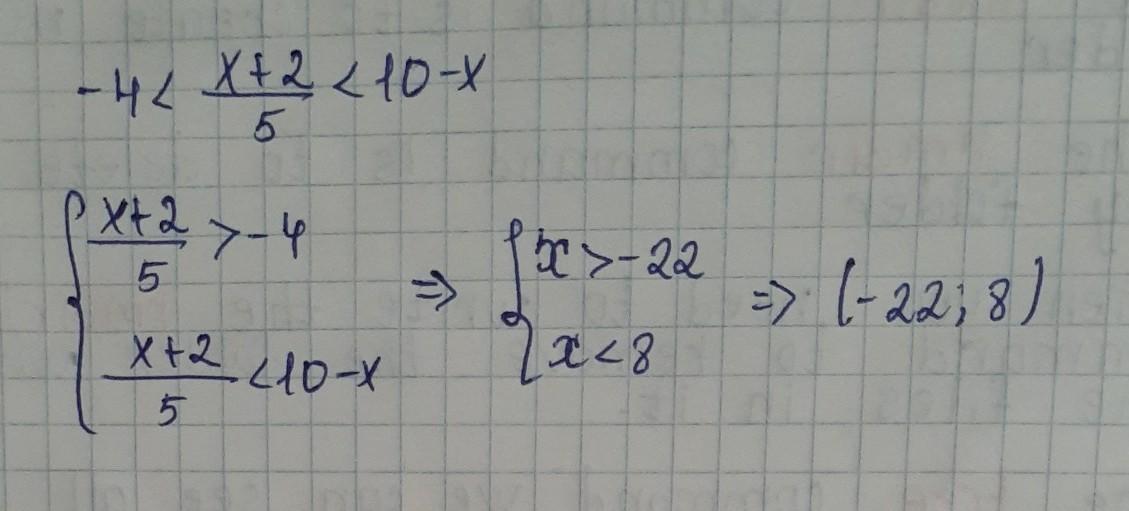 -4 < (x+2)/5 < 10-x
{ (x+2)/5 > -4
(x+2)/5 < 10-x
=> { x > -22
x < 8
=> (-22; 8)